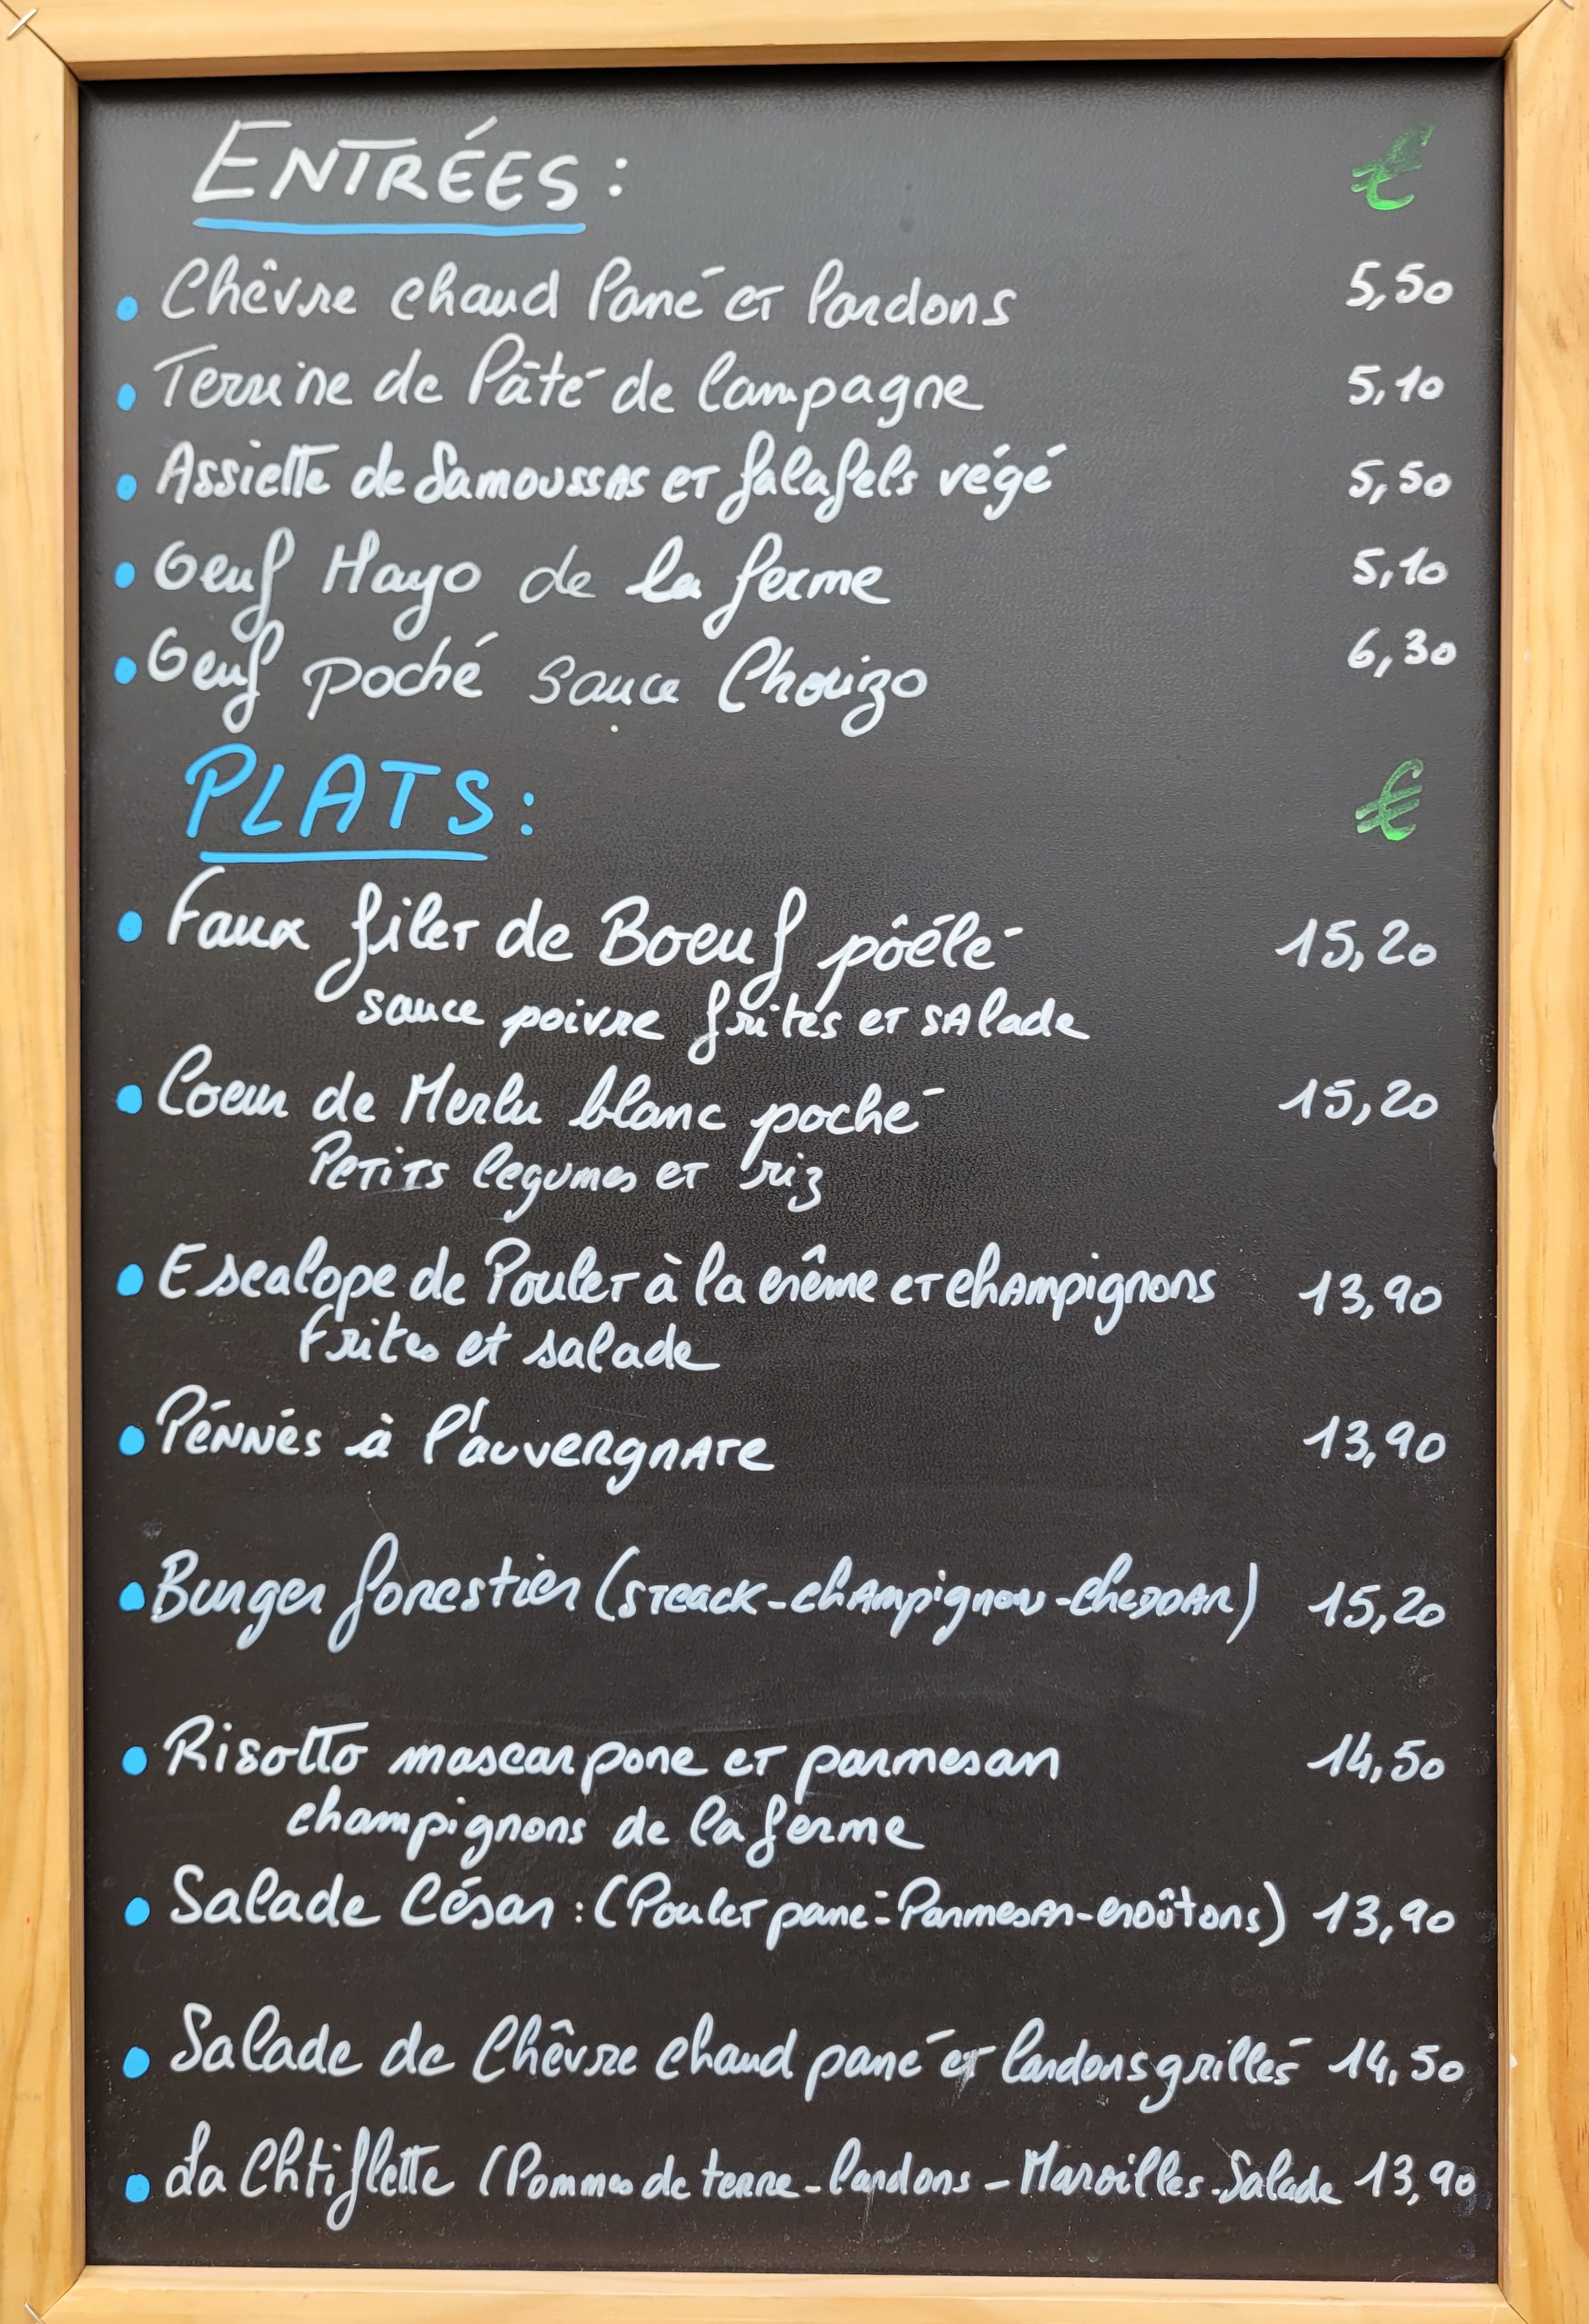 ENTRÉES : €
• Chêvre chaud Pané et lardons 5,50
• Terrine de Pâté de Campagne 5,10
• Assiette de Samoussas et falafels végé 5,50
• Oeuf Mayo de la ferme 5,10
• Oeuf poché sauce Chorizo 6,30
PLATS : €
• Faux filet de Boeuf pôélé 15,20
sauce poivre frites et salade
• Coeur de Merlu blanc poché 15,20
Petits legumes et riz
• Escalope de Poulet à la crême et champignons 13,90
Frites et salade
• Pénnés à l'auvergnate 13,90
• Burger forestier (steack-champignon-cheddar) 15,20
• Risotto mascarpone et parmesan 14,50
champignons de la ferme
• Salade César : (Poulet pané-Parmesan-croûtons) 13,90
• Salade de Chêvre chaud pané et lardons grillés 14,50
• La Chtiflette (Pommes de terre-lardons-Maroilles-Salade 13,90